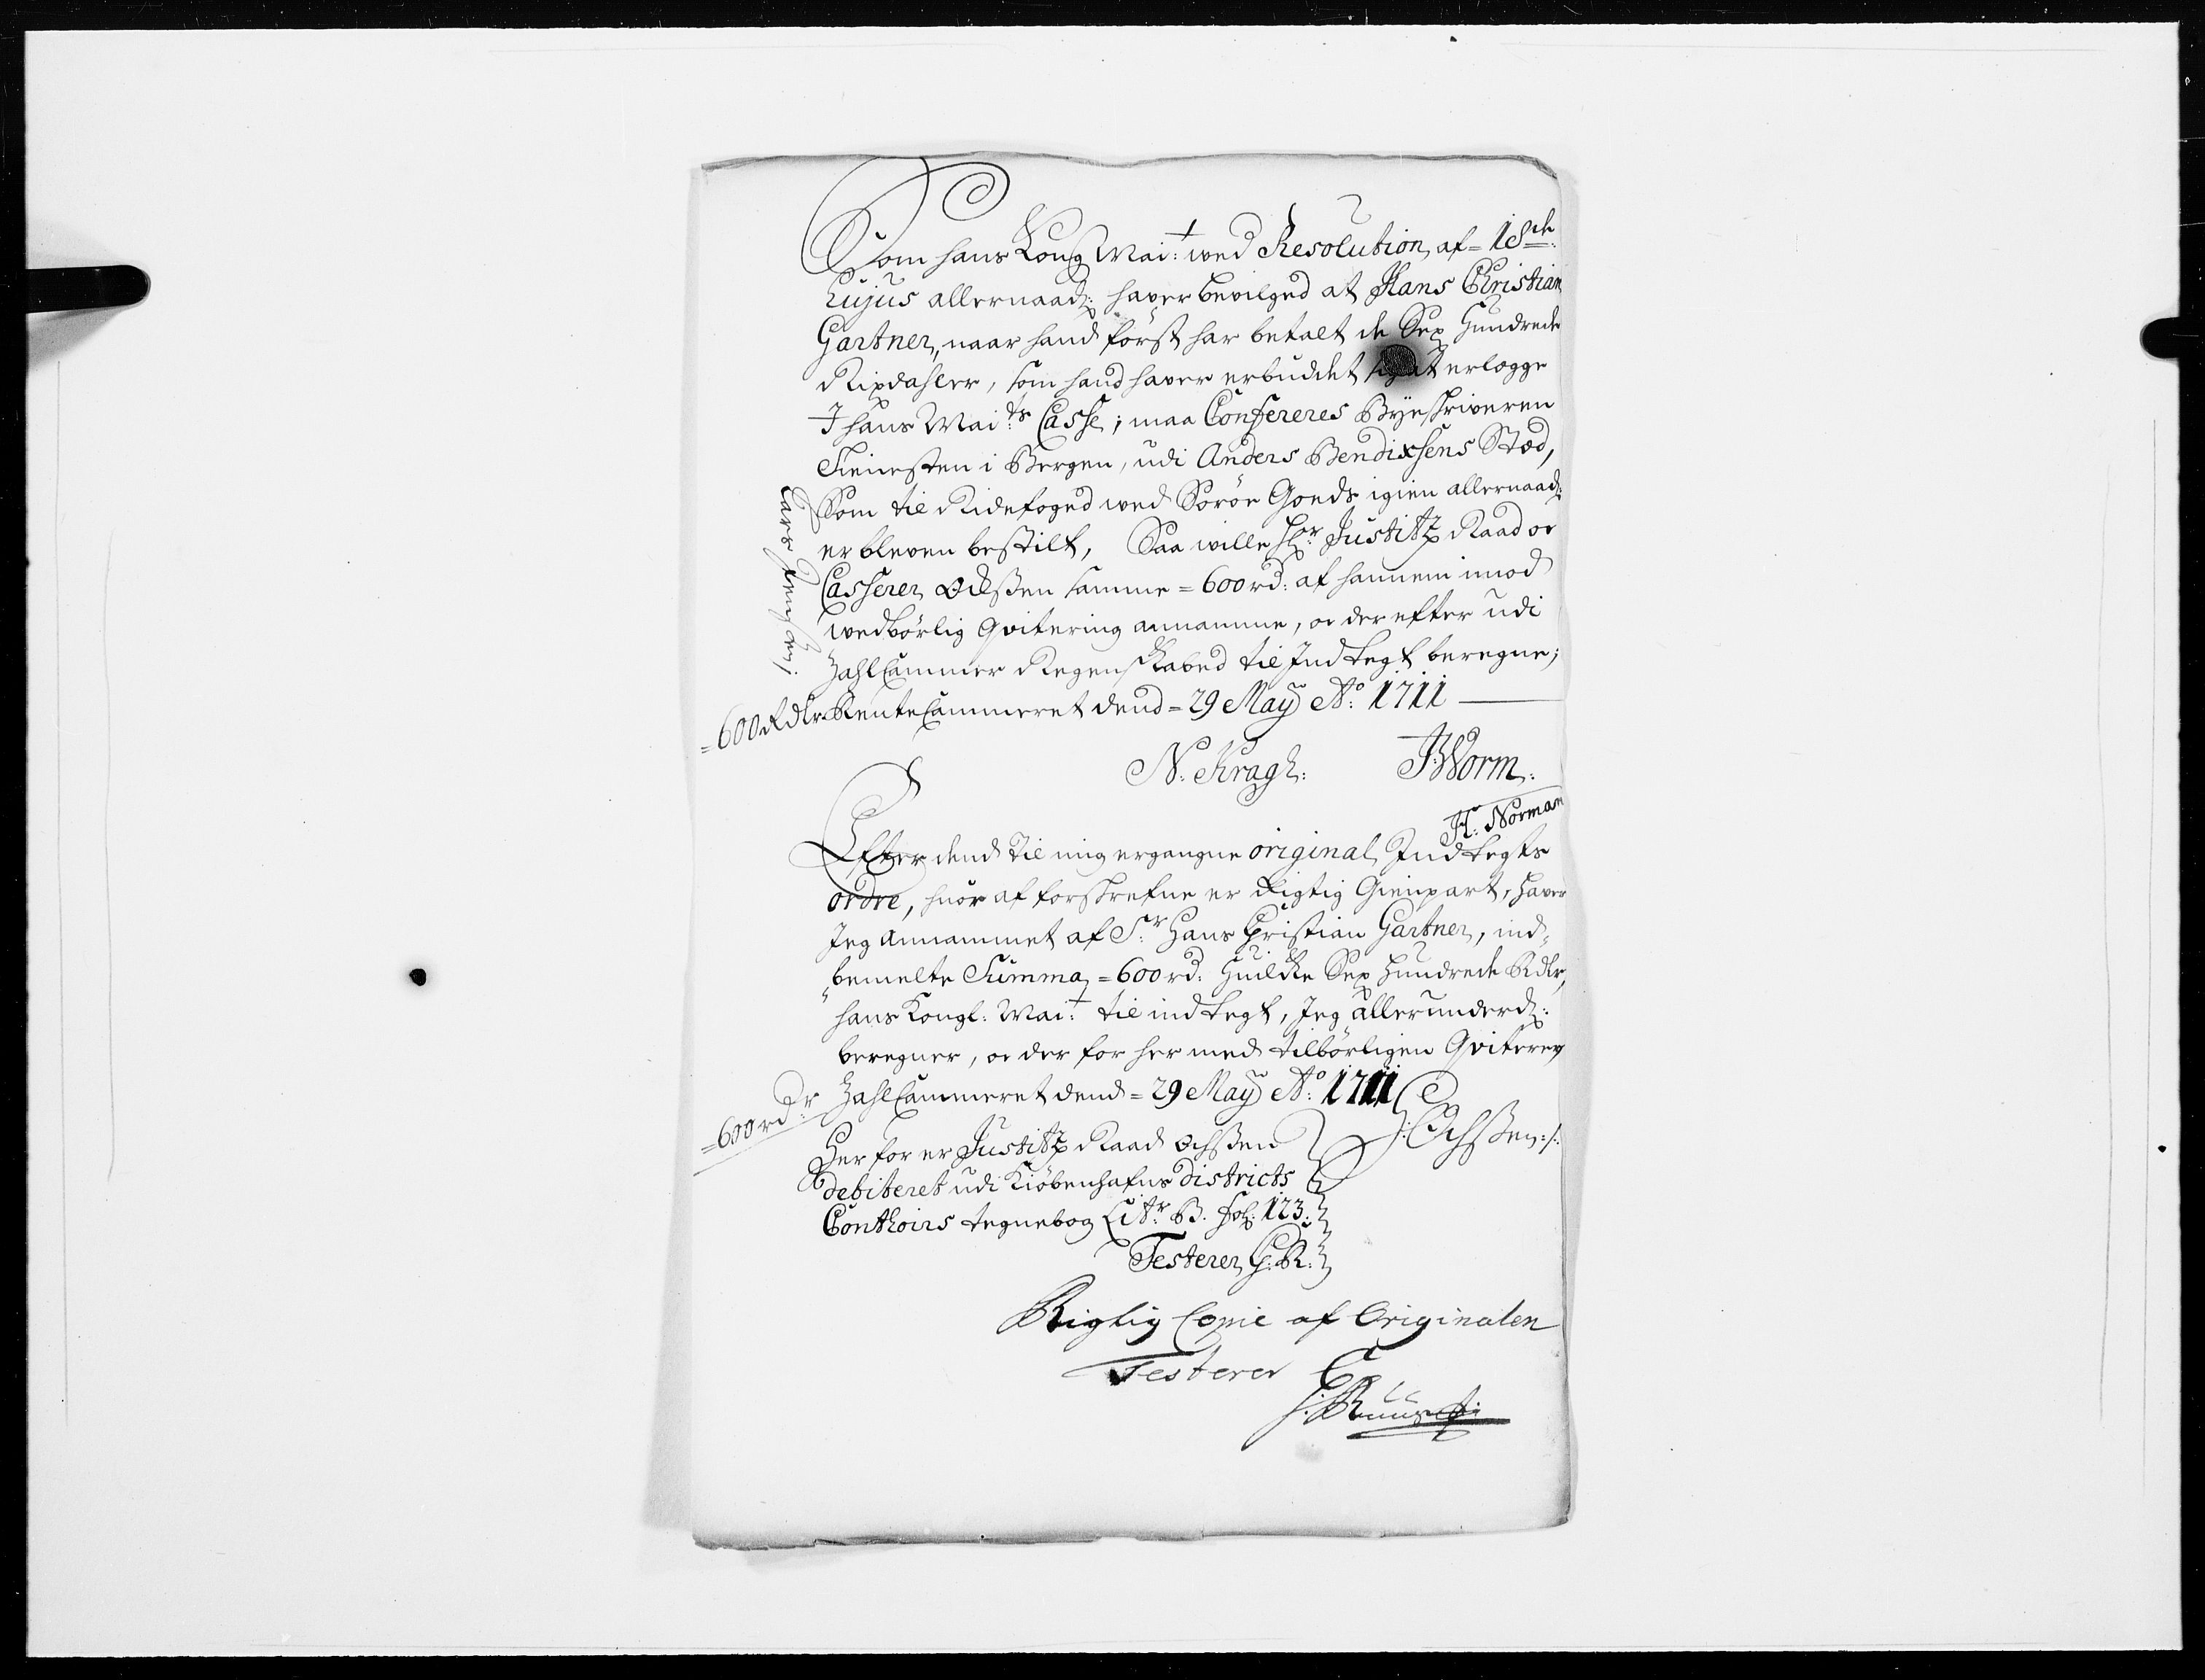 Som hans Kong Mai:t wed Resolution af = 18de
hujus allernaad: hafver bevilged at Hans Christian
Gartner, naar hand först har betalt de Sex Hundrede
Rixdahler, som hand hafver erbuddet sig at erlegge
I hans Mai:ts Casse; maa Confereres Byeskriveren
Tienesten i Bergen, udi Anders Bendixsens Sted,
Som til Ridefoged wed Soröe Goeds igien allernaad:
er bleven bestilt, Saa wille Hr: Justitz Raad oc
Casserer Ochsen samme = 600 rd: af hannem imod
wedbörlig Qvitering annamme, oc der efter udi
ZahlCammer Regenskabed til Indtegt beregne;
RenteCammeret dend = 29 May Ao: 1711
= 600 Rdlr
Lars Jensen
N: Kragh: JWorm:
H: Norman
Efter dend til mig ergangne original Indtegts
ordre, huor af forskrefne er Rigtig Gienpart, hafver
Jeg annammet af Sr: Hans Christian Gartner, ind„
„bemelte Summa = 600 rd: Huilcke Sex hundrede Rdlr,
hans Kongl: Mai:t til indtegt, Jeg allerunderd:
beregner, oc der for her med tilbörligen Qviterer
ZahlCammeret dend = 29 May Ao: 1711
= 600 rdr
Ochsen:/:
Her for er Justitz Raad Ochsen
debiteret udi Kiöbenhafns districts
Conthoirs tegnebog Litr: B. fol: 123:
Testerer G: R:
Rigtig Copie af Originalen
Testerer